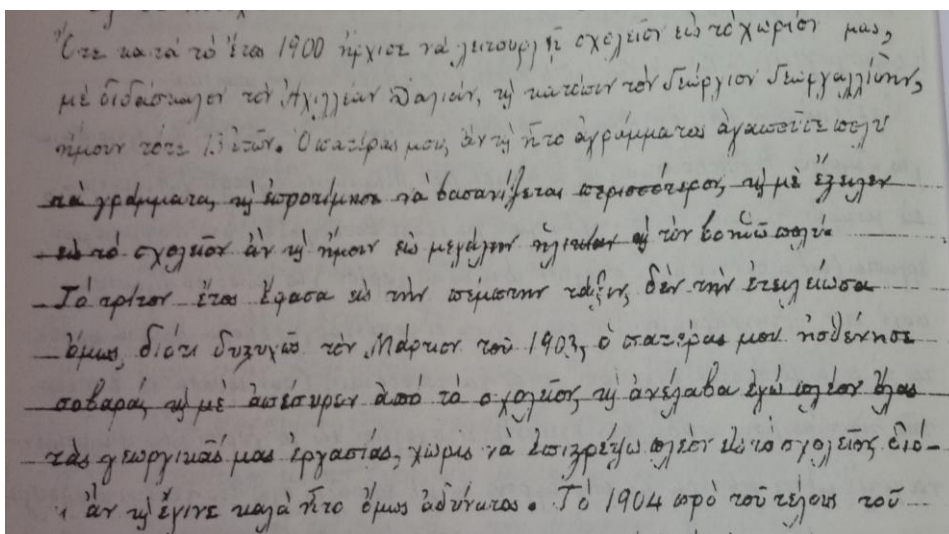 Ὅτε κατά τό ἔτος 1900 ἤρχισε νά λειτουργῇ σχολεῖον εἰς τό χωρίον μας,
μέ διδάσκαλον τόν Ἀχιλλέαν κ̀ κατόπιν τόν Γεώργιον
ἤμουν τότε 13 ἐτῶν. Ὁ πατέρας μου, ἄν κ̀ ἦτο ἀγράμματος ἀγαποῦσε πολύ
τά γράμματα, κ̀ ἐπροτίμησε νά βασανίζεται περισσότερον, κ̀ μέ ἔστειλεν
εἰς τό σχολεῖον ἄν κ̀ ἤμουν εἰς μεγάλην ἡλικίαν κ̀ τόν βοηθῶ πολύ.
Τό τρίτον ἔτος ἔφασα εἰς τήν πέμπτην τάξιν, δέν τήν ἐτελείωσα
ὅμως, διότι δυστυχῶς τόν Μάρτιον τοῦ 1903, ὁ πατέρας μου ἠσθένησε
σοβαρά, κ̀ μέ ἀπέσυρεν ἀπό τό σχολεῖον, κ̀ ἀνέλαβα ἐγώ πλέον ὅλας
τάς γεωργικάς μας ἐργασίας, χωρίς νά ἐπιστρέψω πλέον εἰς τό σχολεῖον, διό-
ἄν κ̀ ἔγινε καλά ἦτο ὅμως ἀδύνατος. Τό 1904 πρό τοῦ τέλους τοῦ